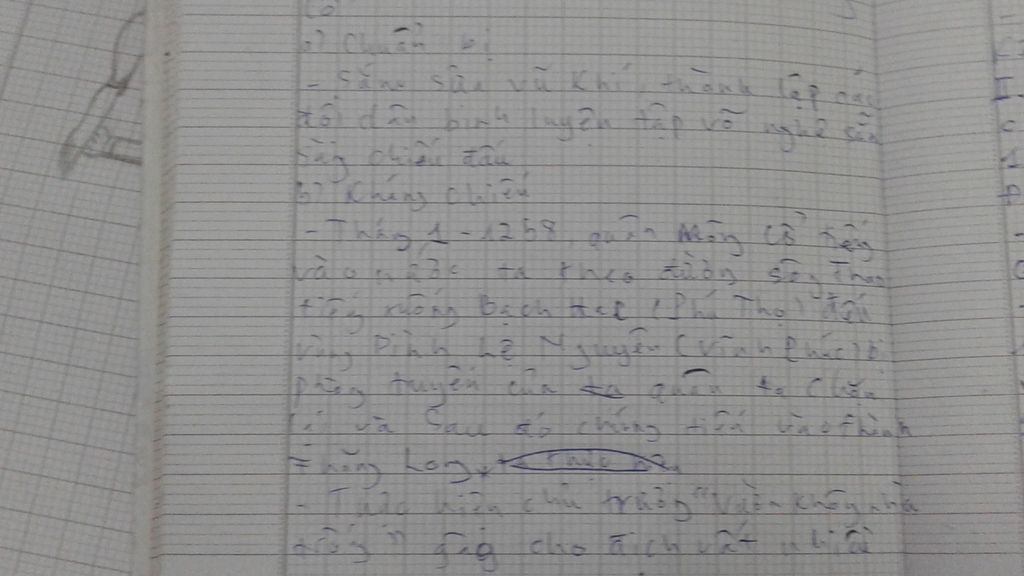 b) Chuẩn bị
- Sắm sửa vũ khí, thành lập các
đội dân binh luyện tập võ nghệ sẵn
sàng chiến đấu
b) Kháng chiến
- Tháng 1-1258, quân Mông Cổ tiến
vào nước ta theo đường sông Thao
tiến xuống Bạch Hạc (Phú Thọ) đến
vùng Bình Lệ Nguyên (Vĩnh Phúc) bị
phòng tuyến của quân ta chặn
lại và sau đó chúng tiến vào thành
Thăng Long,
- Thực hiện chủ trương "Vườn không nhà
trống" gây cho địch vất nhiều